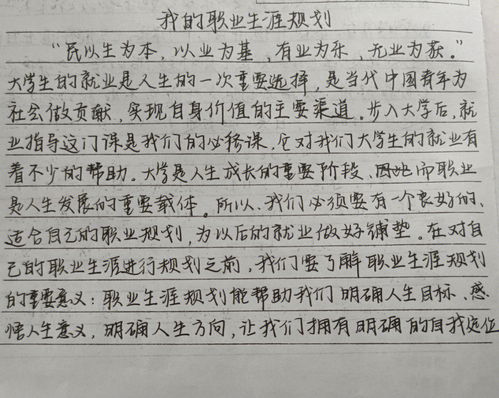 我的职业生涯规划
“民以生为本，以业为基，有业为乐，无业为哀。”
大学生的就业是人生的一次重要选择，是当代中国青年为
社会做贡献，实现自身价值的主要渠道。步入大学后，就
业指导这门课是我们的必修课，它对我们大学生的就业有
着不少的帮助。大学是人生成长的重要阶段，而职业
是人生发展的重要载体。所以，我们必须要有一个良好的、
适合自己的职业规划，为以后的就业做好铺垫。在对自
己的职业生涯进行规划之前，我们要了解职业生涯规划
的重要意义：职业生涯规划能帮助我们明确人生目标、感
悟人生意义，明确人生方向，让我们拥有明确的自我定位